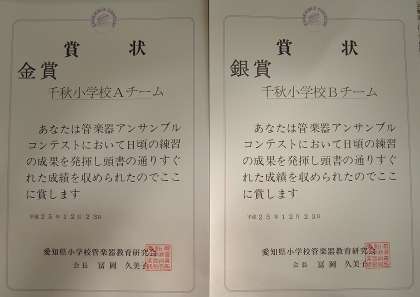 賞 状
金賞
千秋小学校Aチーム
あなたは管楽器アンサンブル
コンテストにおいて日頃の練習
の成果を発揮し頭書の通りすぐ
れた成績を収められたのでここ
に賞します
平成25年12月23日
愛知県小学校管楽器教育研究会
会長 冨岡 久美子
賞 状
銀賞
千秋小学校Bチーム
あなたは管楽器アンサンブル
コンテストにおいて日頃の練習
の成果を発揮し頭書の通りすぐ
れた成績を収められたのでここ
に賞します
平成25年12月23日
愛知県小学校管楽器教育研究会
会長 冨岡 久美子